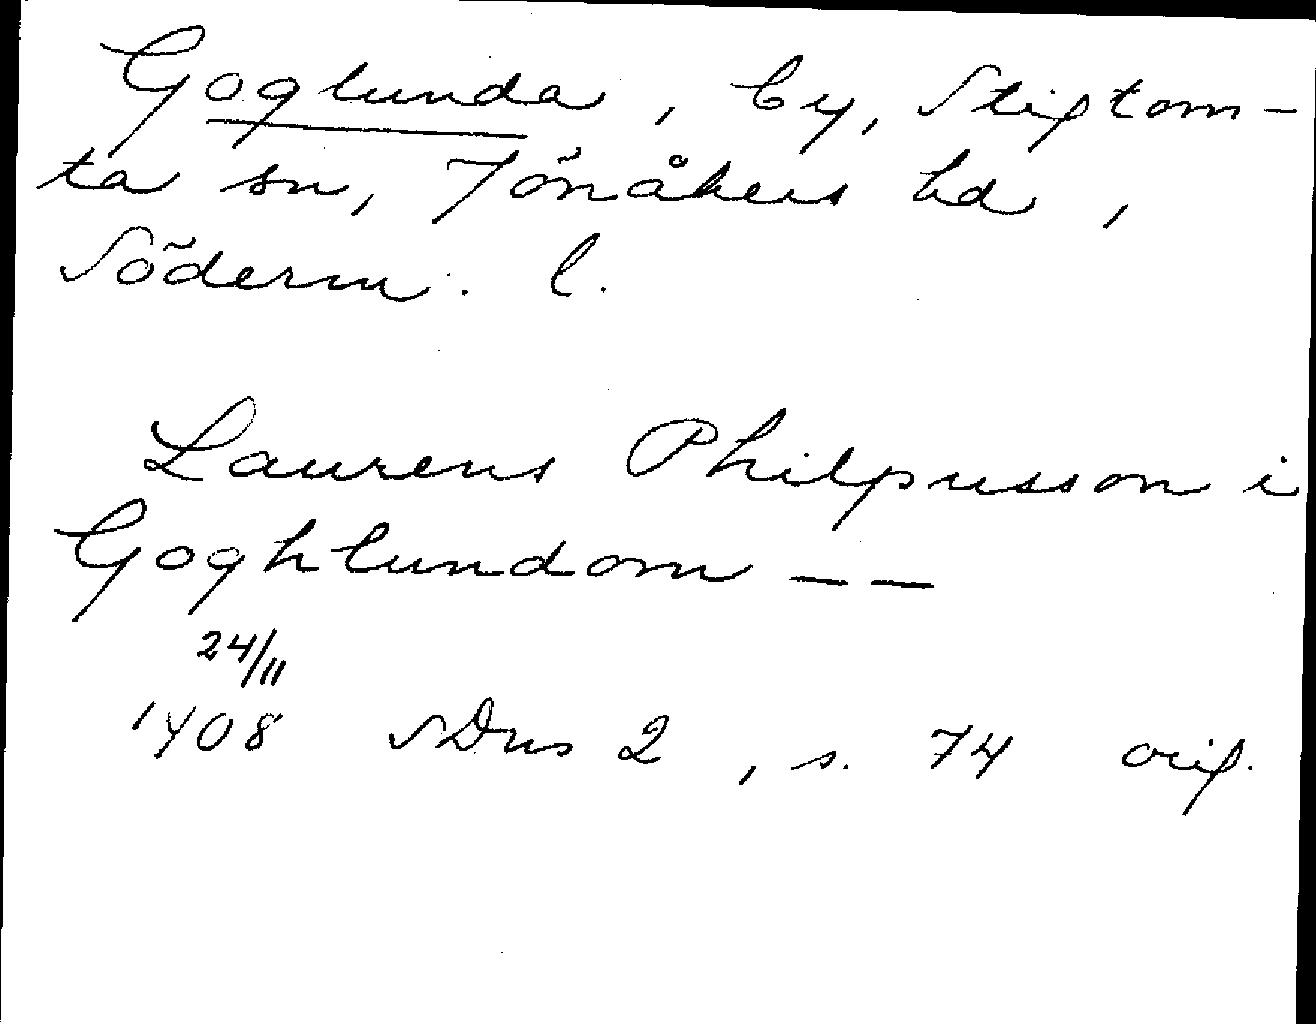 Goglunda, by, Stigtom-
ta sn, Jönåkers hd,
Söderm. l.
Laurens Philpusson i
Goghlundom – –
24/11
1408 SDns 2, s. 74 orig.